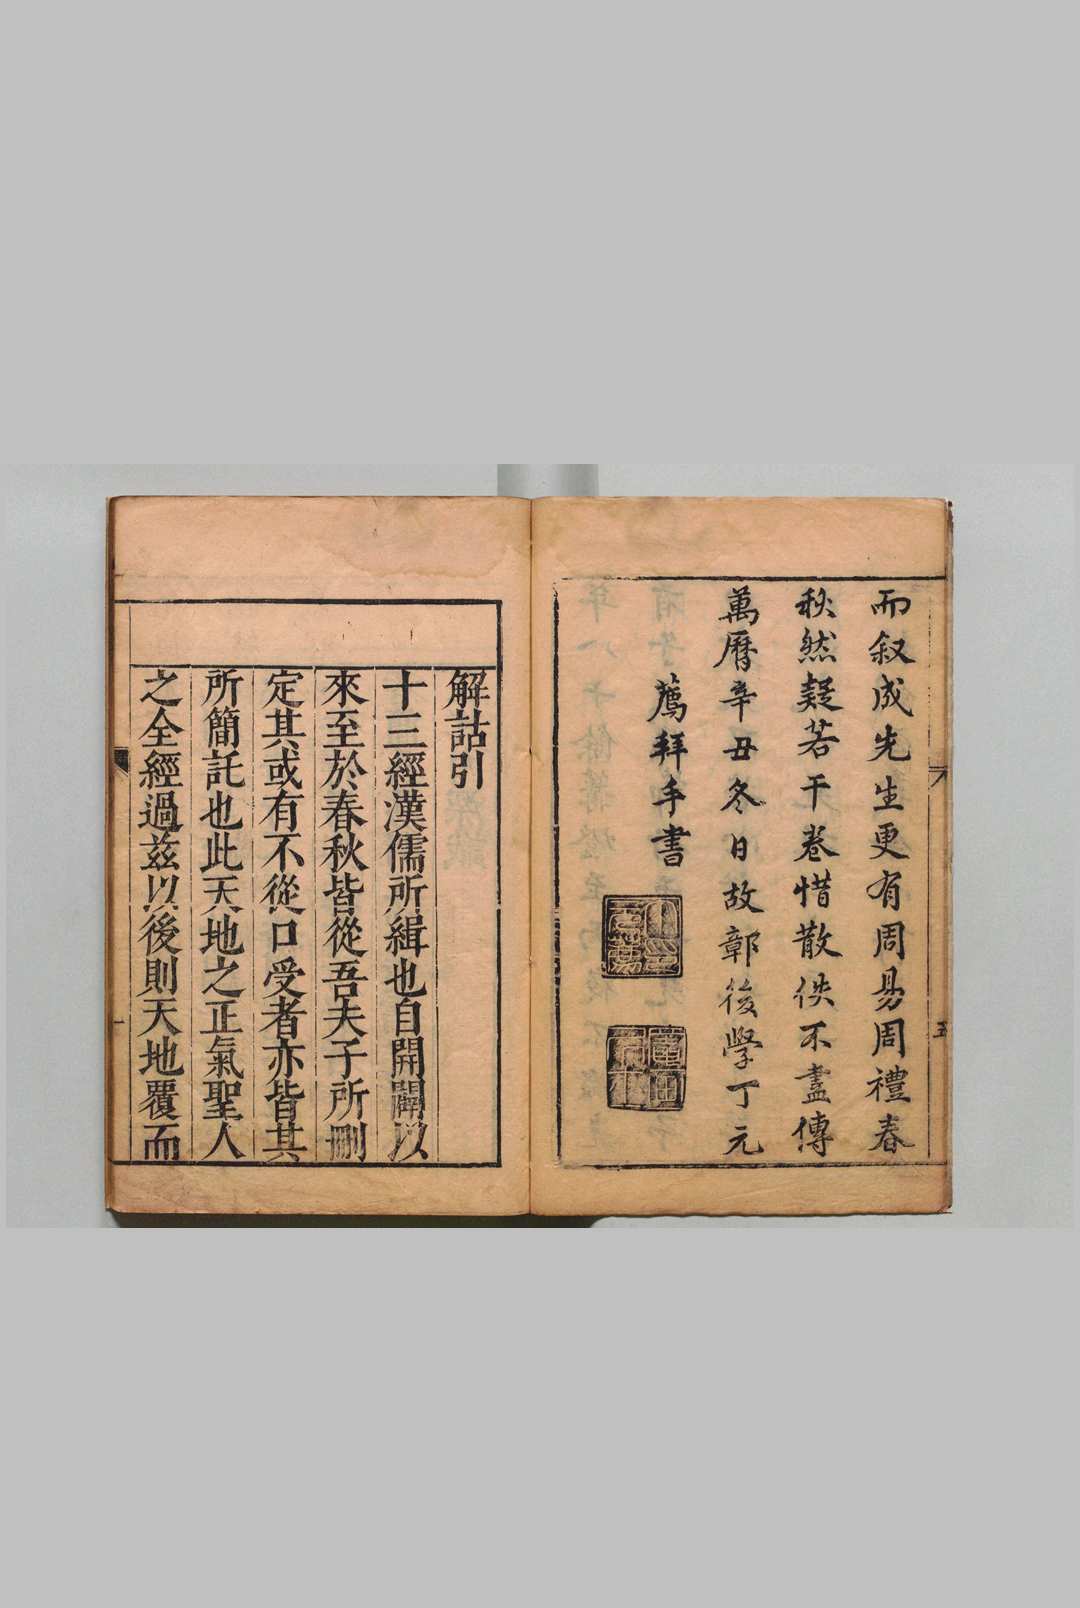 而叙成先生更有周易周禮春
秋然疑若干卷惜散佚不盡傳
萬曆辛丑冬日故鄣後學丁元
薦拜手書
五
解詁引
十三經漢儒所緝也自開闢以
來至於春秋皆從吾夫子所刪
定其或有不從口受者亦皆其
所簡託也此天地之正氣聖人
之全經過茲以後則天地覆而
一